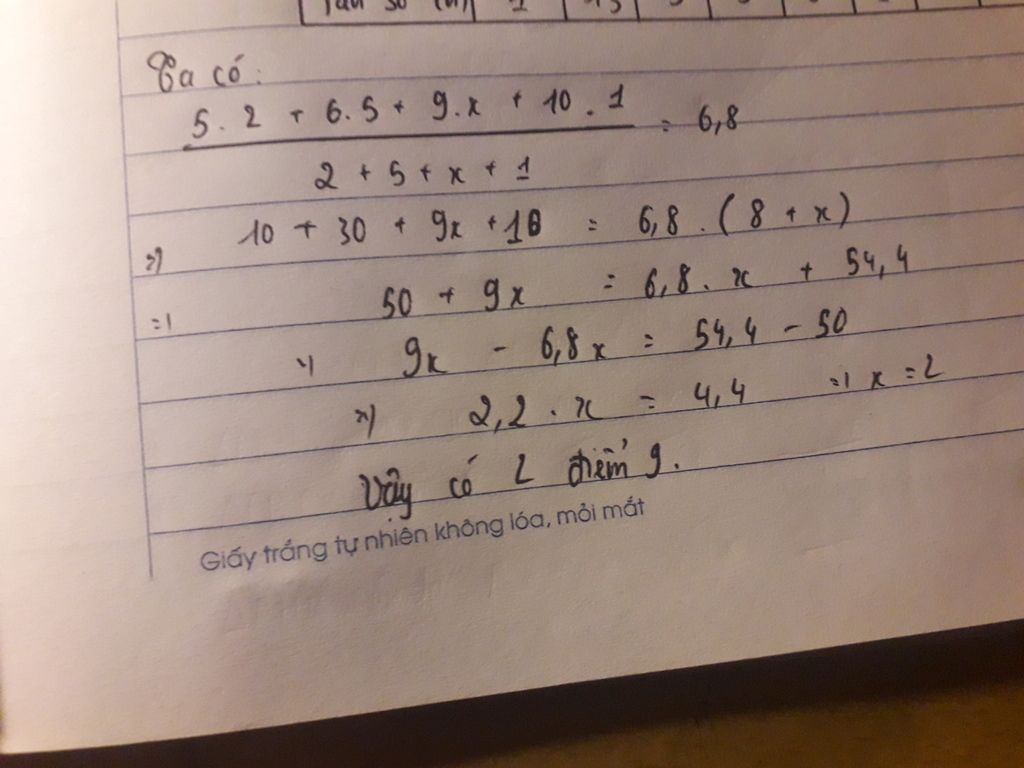 Tần số (n) 1
Ta có:
5. 2 + 6. 5 + 9. x + 10 . 1
= 6,8
2 + 5 + x + 1
=> 10 + 30 + 9x + 10 = 6,8 . (8 + x)
=> 50 + 9x = 6,8 . x + 54,4
=> 9x - 6,8x = 54,4 - 50
=> 2,2 . x = 4,4 => x = 2
Vậy có 2 điểm 9.
Giấy trắng tự nhiên không lóa, mỏi mắt